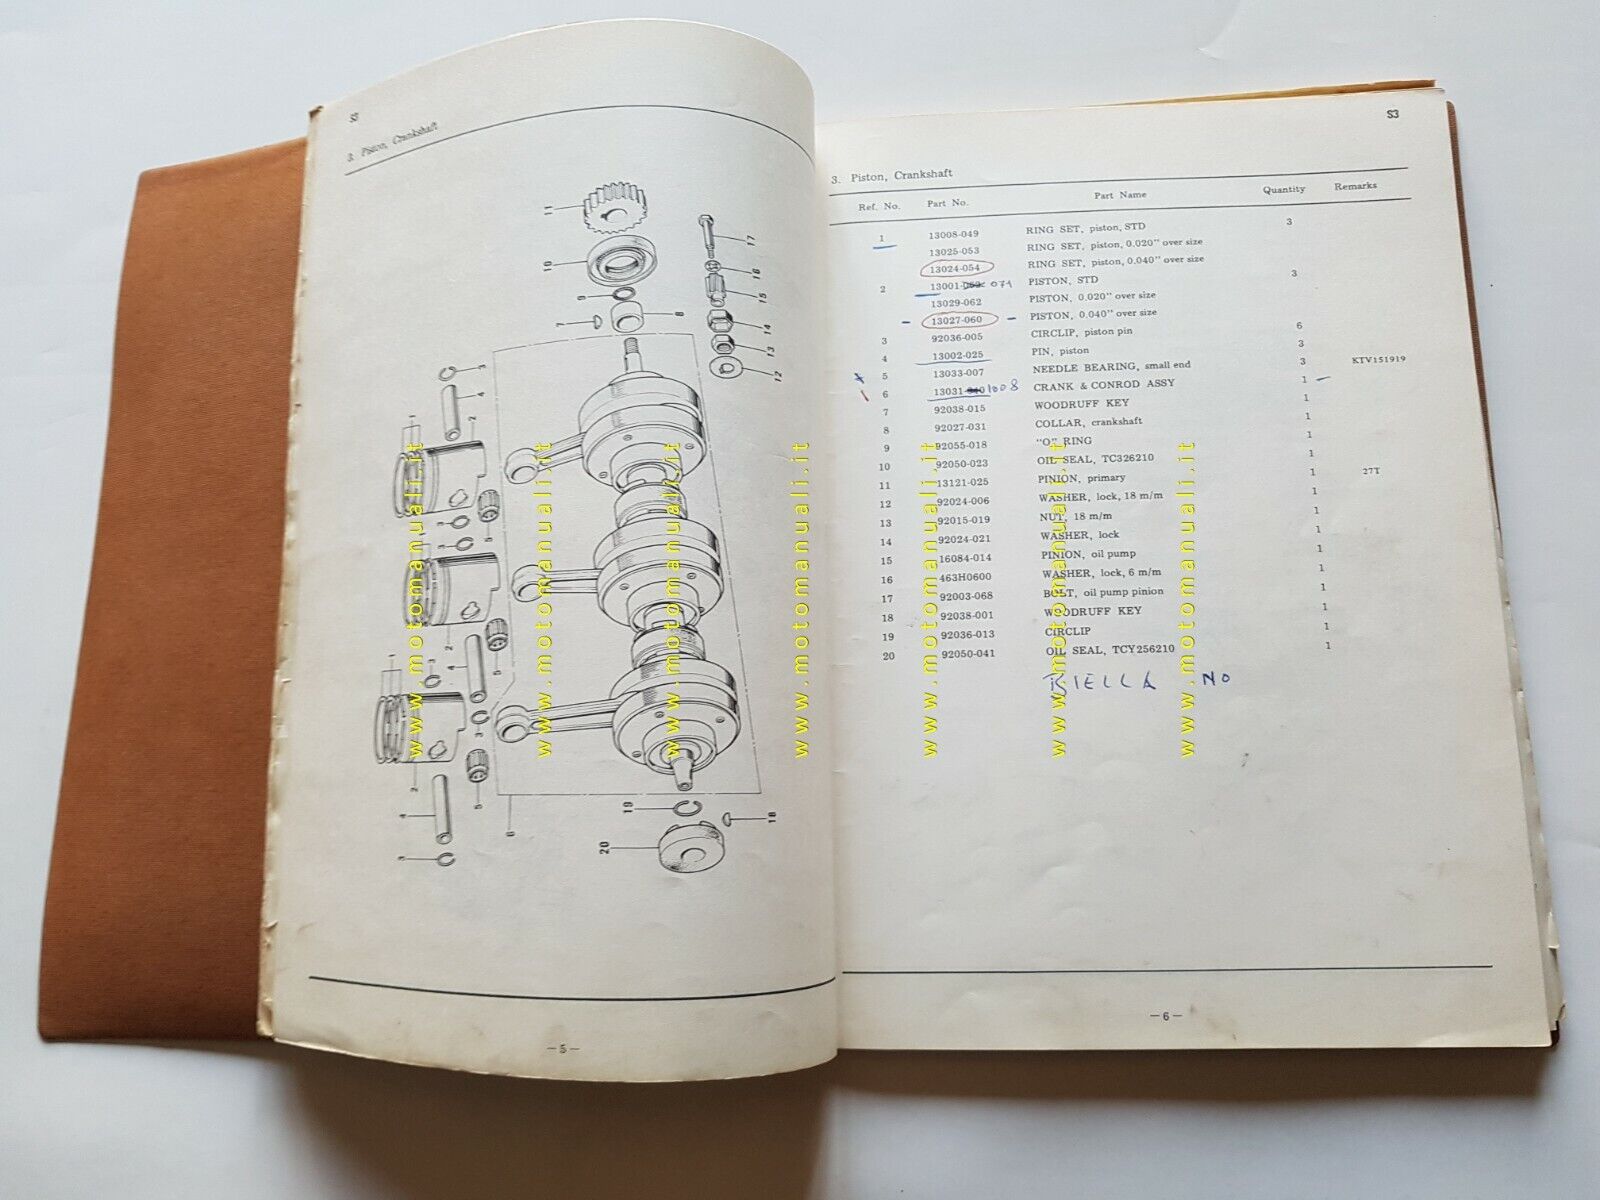 S3
3. Piston, Crankshaft
11
10
9
8
7
17
16
15
14
13
12
3
4
1
2
3
5
3
1
2
4
5
3
1
3
2
5
4
3
6
19
18
20
www.motomanuali.it
www.motomanuali.it
www.motomanuali.it
www.motomanuali.it
— 5 —
S3
3. Piston, Crankshaft
Ref. No. Part No. Part Name Quantity Remarks
1 13008-049 RING SET, piston, STD 3
13025-053 RING SET, piston, 0.020" over size
13024-054 RING SET, piston, 0.040" over size
2 13001- 071 PISTON, STD 3
13029-062 PISTON, 0.020" over size
– 13027-060 – PISTON, 0.040" over size
3 92036-005 CIRCLIP, piston pin 6
4 13002-025 PIN, piston 3
5 13033-007 NEEDLE BEARING, small end 3 KTV151919
6 13031- 1008 CRANK & CONROD ASSY 1 –
7 92038-015 WOODRUFF KEY 1
8 92027-031 COLLAR, crankshaft 1
9 92055-018 "O" RING 1
10 92050-023 OIL SEAL, TC326210 1
11 13121-025 PINION, primary 1 27T
12 92024-006 WASHER, lock, 18 m/m 1
13 92015-019 NUT, 18 m/m 1
14 92024-021 WASHER, lock 1
15 16084-014 PINION, oil pump 1
16 463H0600 WASHER, lock, 6 m/m 1
17 92003-068 BOLT, oil pump pinion 1
18 92038-001 WOODRUFF KEY 1
19 92036-013 CIRCLIP 1
20 92050-041 OIL SEAL, TCY256210 1
BIELLA NO
www.motomanuali.it
www.motomanuali.it
www.motomanuali.it
— 6 —